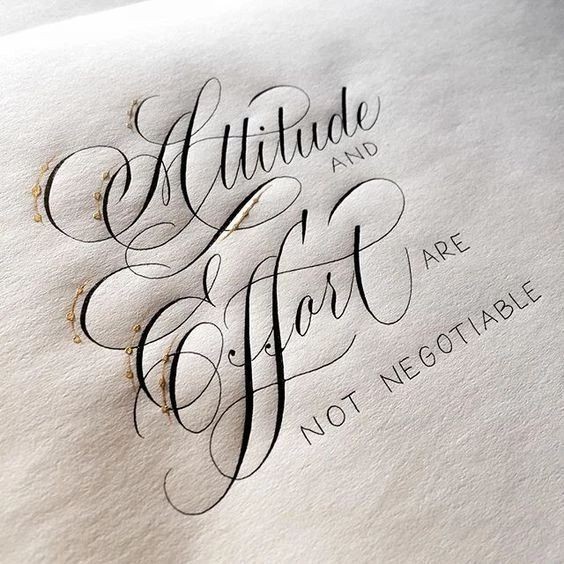 Attitude
AND
Effort ARE
NOT NEGOTIABLE